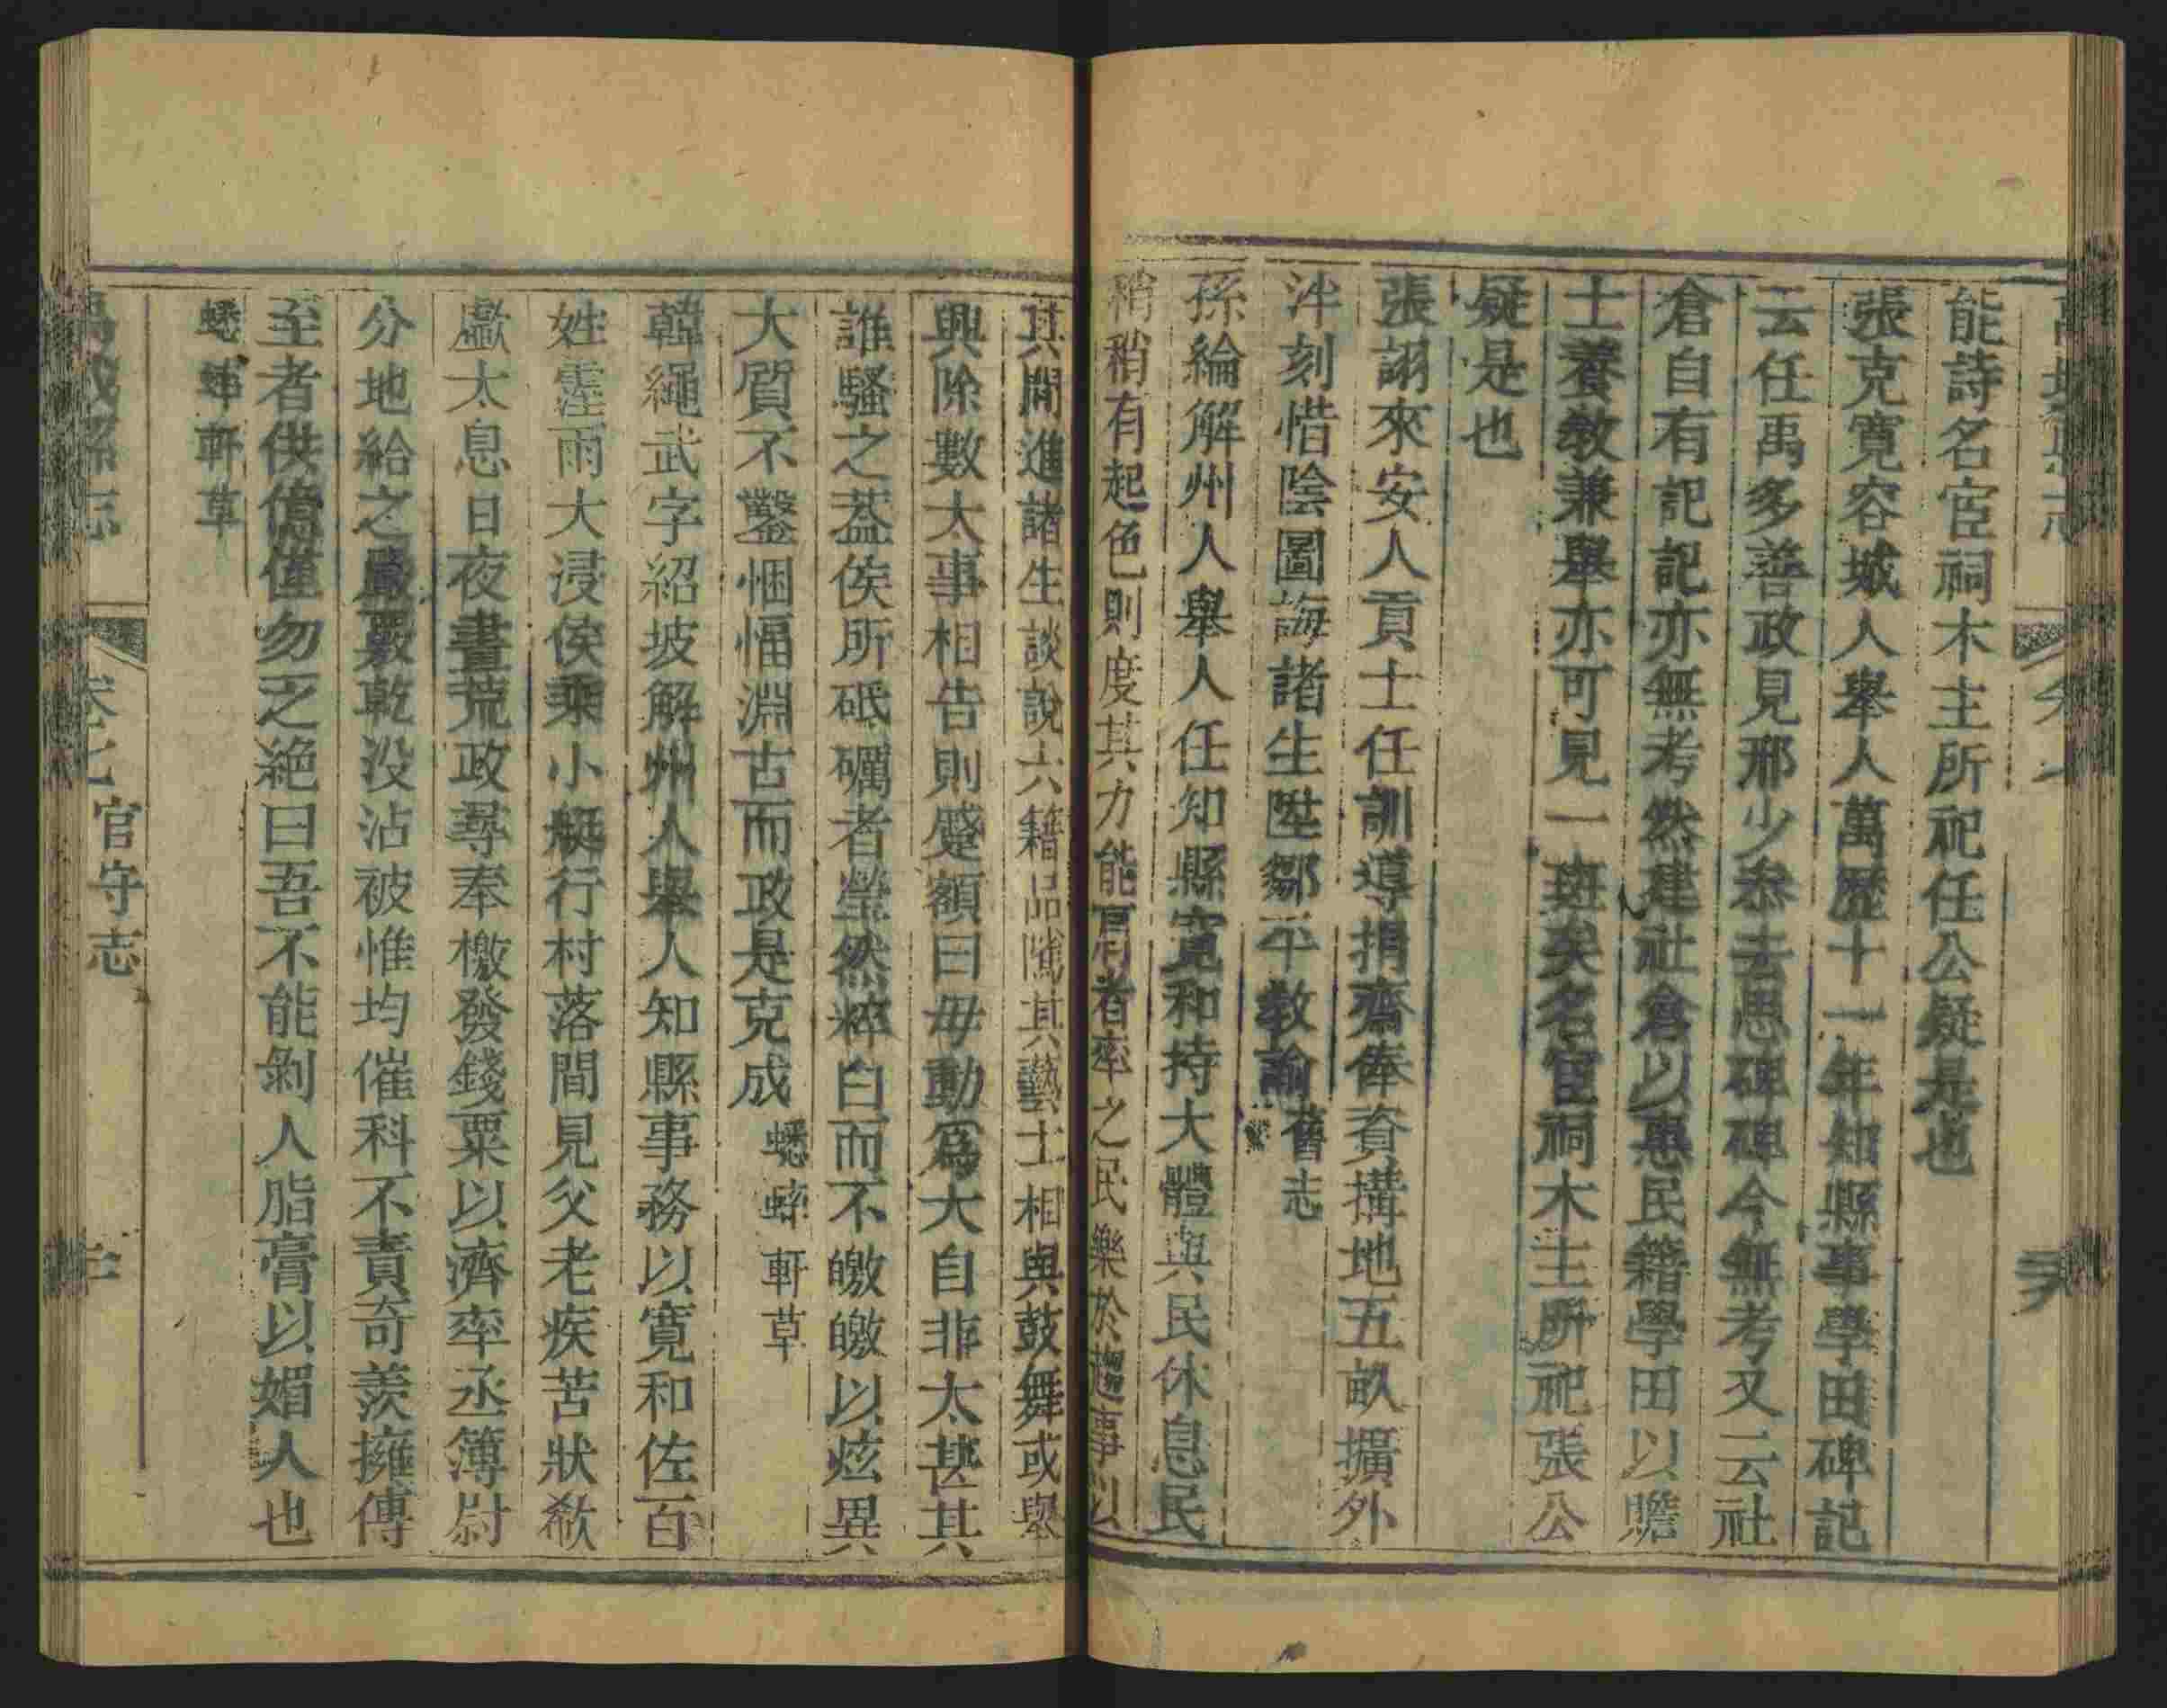 能詩名宦祠木主所祀任公疑是也
張克寬容城人舉人萬歷十一年知縣事學田碑記
云任禹多善政見邢少叅去思碑碑今無考又云社
倉自有記記亦無考然建社倉以惠民籍學田以贍
士養敎兼舉亦可見一斑矣名宦祠木主所祀張公
疑是也
張詡來安人貢士任訓導捐齋俸資搆地五畝擴外
泮刻惜陰圖誨諸生陞鄒平敎諭舊志
孫綸解州人舉人任知縣寬和持大體與民休息民
稍稍有起色則度其力能者率之民樂於趨事以
其閒進諸生談說六籍品隲其藝士相與鼓舞或舉
興除數大事相告則蹙額曰毋動爲大自非太甚其
誰騷之葢侯所砥礪者瑩然粹白而不皦皦以炫異
大質不鑿悃愊淵古而政是克成蟋蟀軒草
韓繩武字紹坡解州人舉人知縣事務以寛和佐百
姓霪雨大浸侯乘小艇行村落間見父老疾苦狀欷
歔太息日夜晝荒政尋奉檄發錢粟以濟率丞簿尉
分地給之嚴覈乾没沾被惟均催科不責奇羨擁傳
至者供僅勿之絶曰吾不能剝人脂膏以媚人也
蟋蟀軒草
禹城縣志 卷之七 官守志